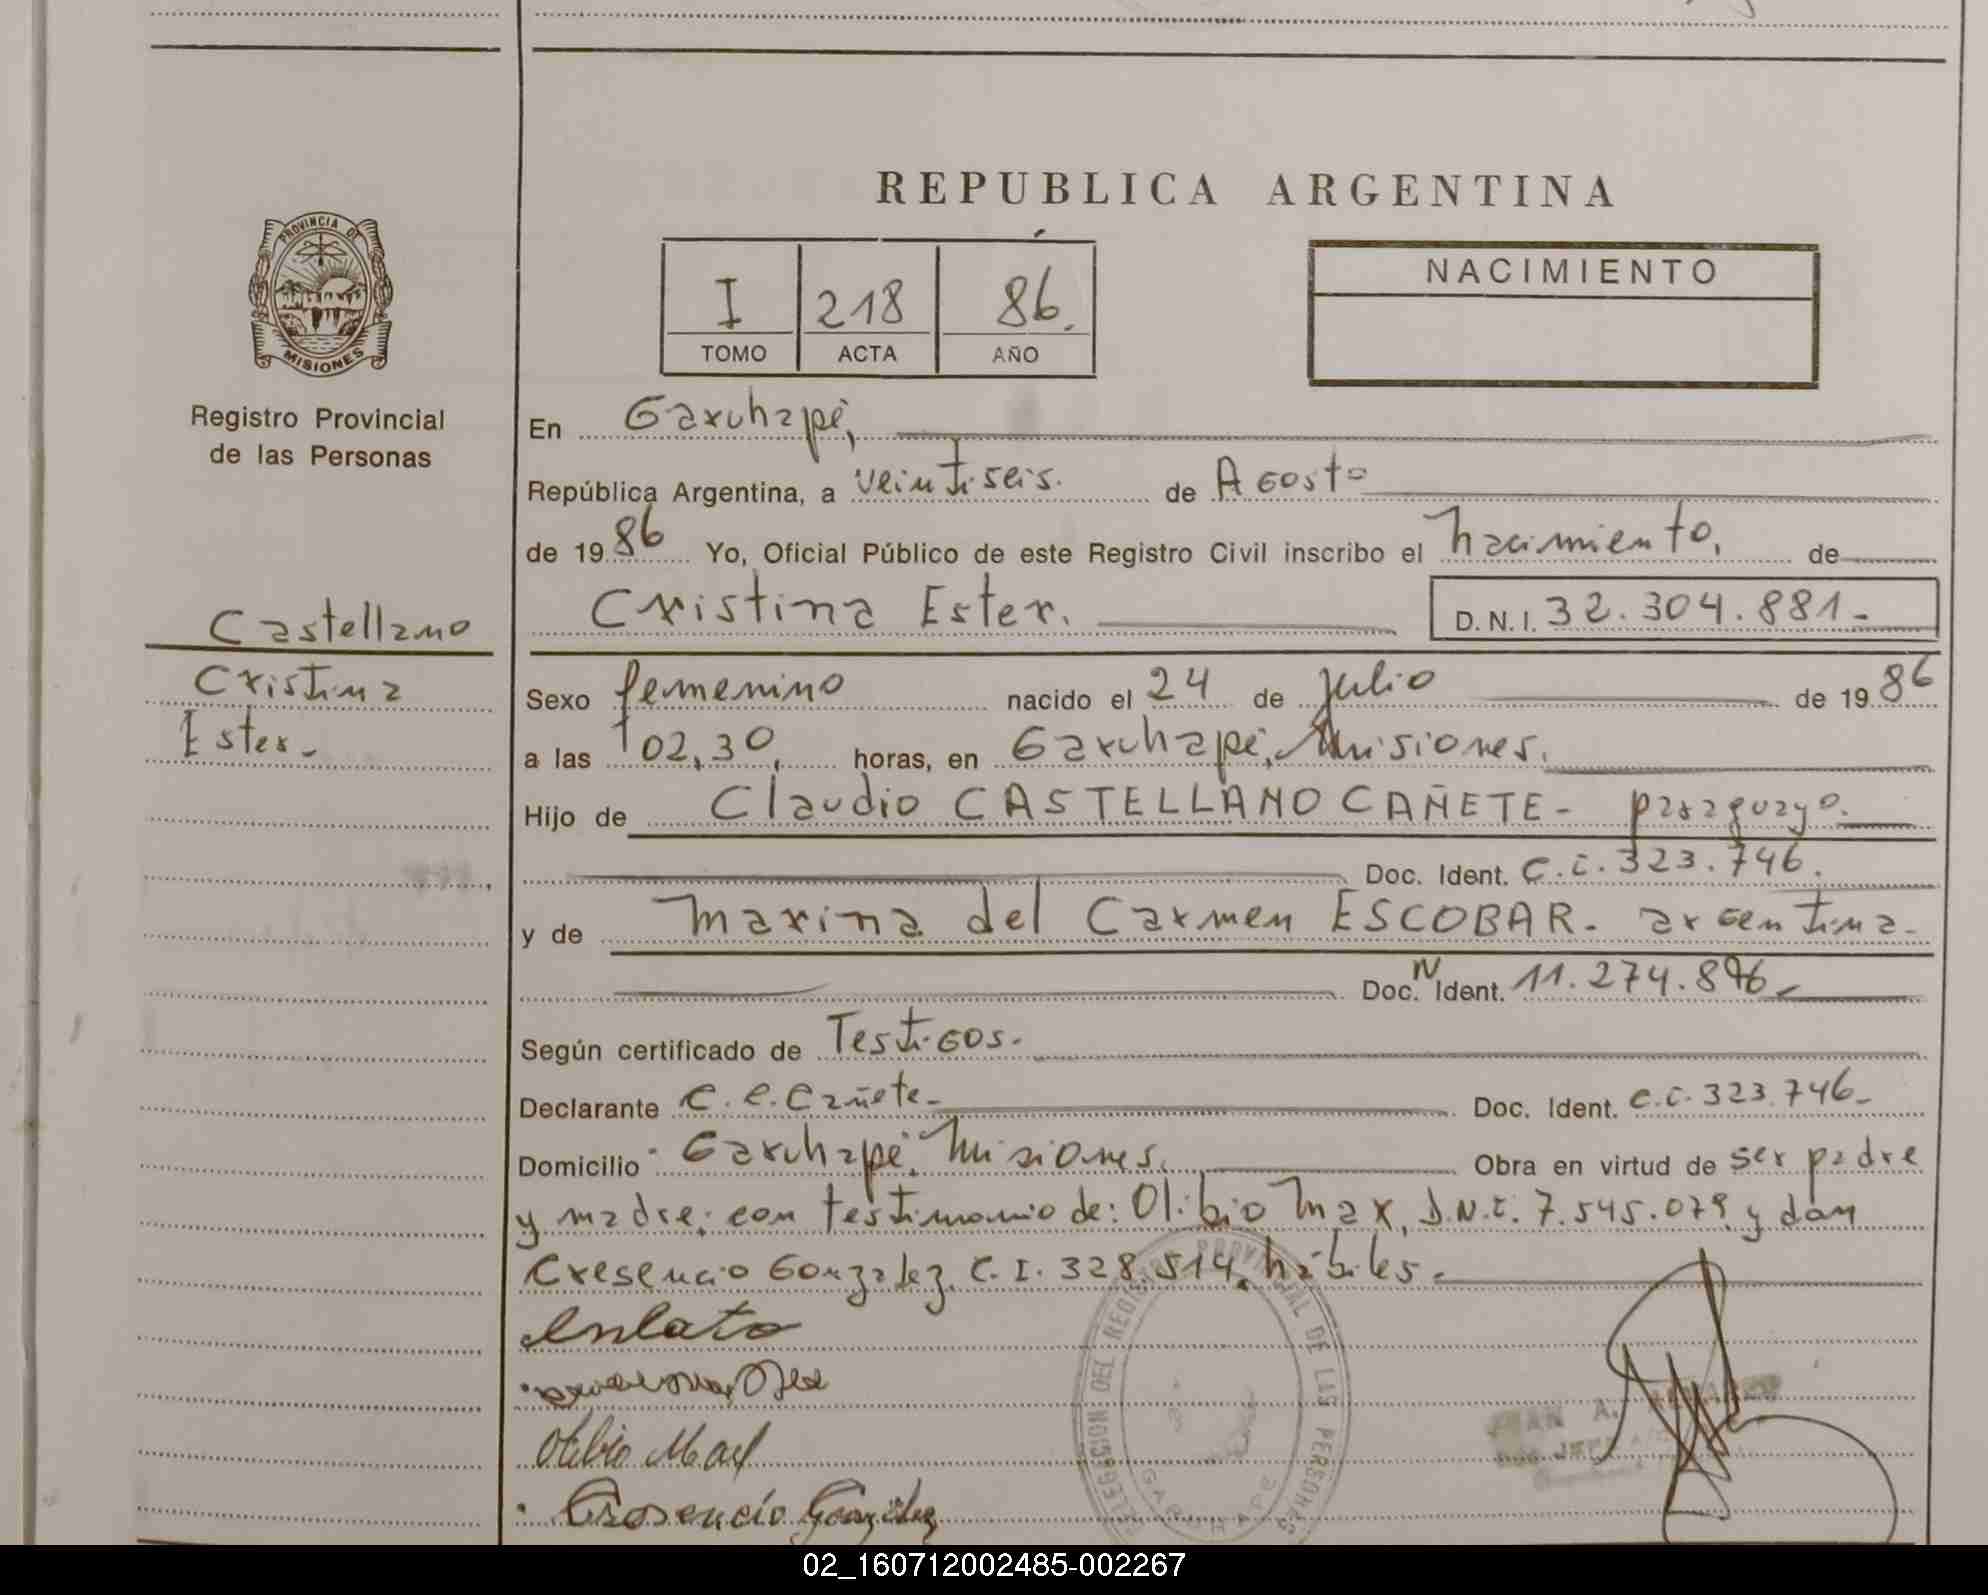 REPUBLICA ARGENTINA
PROVINCIA DE
MISIONES
Registro Provincial
de las Personas
I 218 86.
TOMO ACTA AÑO
NACIMIENTO
En Garuhapé,
República Argentina, a veintiseis. de Agosto
de 1986 Yo, Oficial Público de este Registro Civil inscribo el Nacimiento, de
Cristina Ester. D. N. I. 32.304.881.-
Castellano
Cristina
Ester.-
Sexo femenino nacido el 24 de julio de 1986
a las 02,30, horas, en Garuhapé, Misiones.
Hijo de Claudio CASTELLANO CAÑETE - paraguayo.
Doc. Ident. C.i. 323.746.
y de Marina del Carmen ESCOBAR. argentina.-
Doc. N Ident. 11.274.896.-
Según certificado de Testigos.
Declarante C. C. Cañete.- Doc. Ident. C.i. 323.746.-
Domicilio Garuhapé, Misiones. Obra en virtud de ser padre
y madre; con testimonio de: Olibio Max, D.N.i. 7.545.079 y don
Cresencio Gonzalez. C.I. 328.514, hábiles.-
Olibio Max
Cresencio González
DELEGACION DEL REGISTRO PROVINCIAL DE LAS PERSONAS
GARUHAPE
JUAN A.
02_160712002485-002267